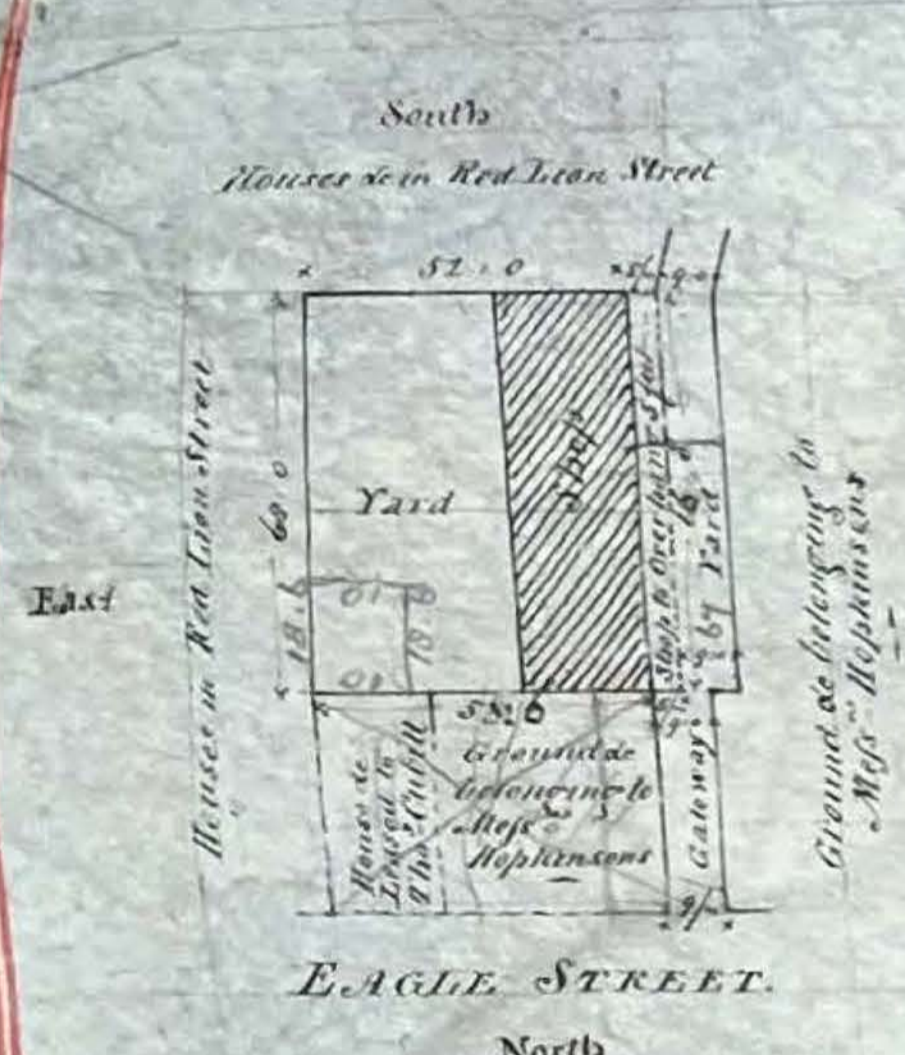 South
Houses &c in Red Lion Street
52 . 0
5/
9 . 0
East
Houses in Red Lion Street
68 . 0
18 . 6
Yard
Shop
Shop to Overhang 5 feet
Yard
10
18 . 6
10
Ground &c belonging to
Mess.rs Hopkinsons
58
House &c
Leased to
Thos. Cubitt
Ground &c
belonging to
Mess.rs
Hopkinsons
Gateway
9/
EAGLE STREET.
North